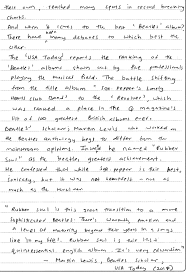 their own, reached many spots in record breaking
charts.
And when it comes to the best 'Beatles' album?
There have been many debates to which best the
other.
The 'USA Today' reports the ranking of the
Beatles' albums shown out by the professionals
playing the musical field. The battle shifting
from the title album "Sgt Pepper's Lonely
Hearts Club Band" to the "Revolver" which
was ranked a place in the Q magazine's
list of 100 greatest British albums ever.
Beatles' Scholars Martin Lewis who worked on
the Beatles anthology begs to differ from the
mainstream opinions. He named "Rubber
Soul" as the Beatles greatest achievement.
He confessed that while Sgt pepper is their best,
sonically, but it was not
much as the
"Rubber Soul is this great transition to a more
sophisticated Beatles. There warmth, passion and
a level of maturity beyond their years in songs
like 'In my life'. Rubber Soul is such the
quintessential english album. It's very
— Martin Lewis, Beatles Scholar,
USA Today (2009)